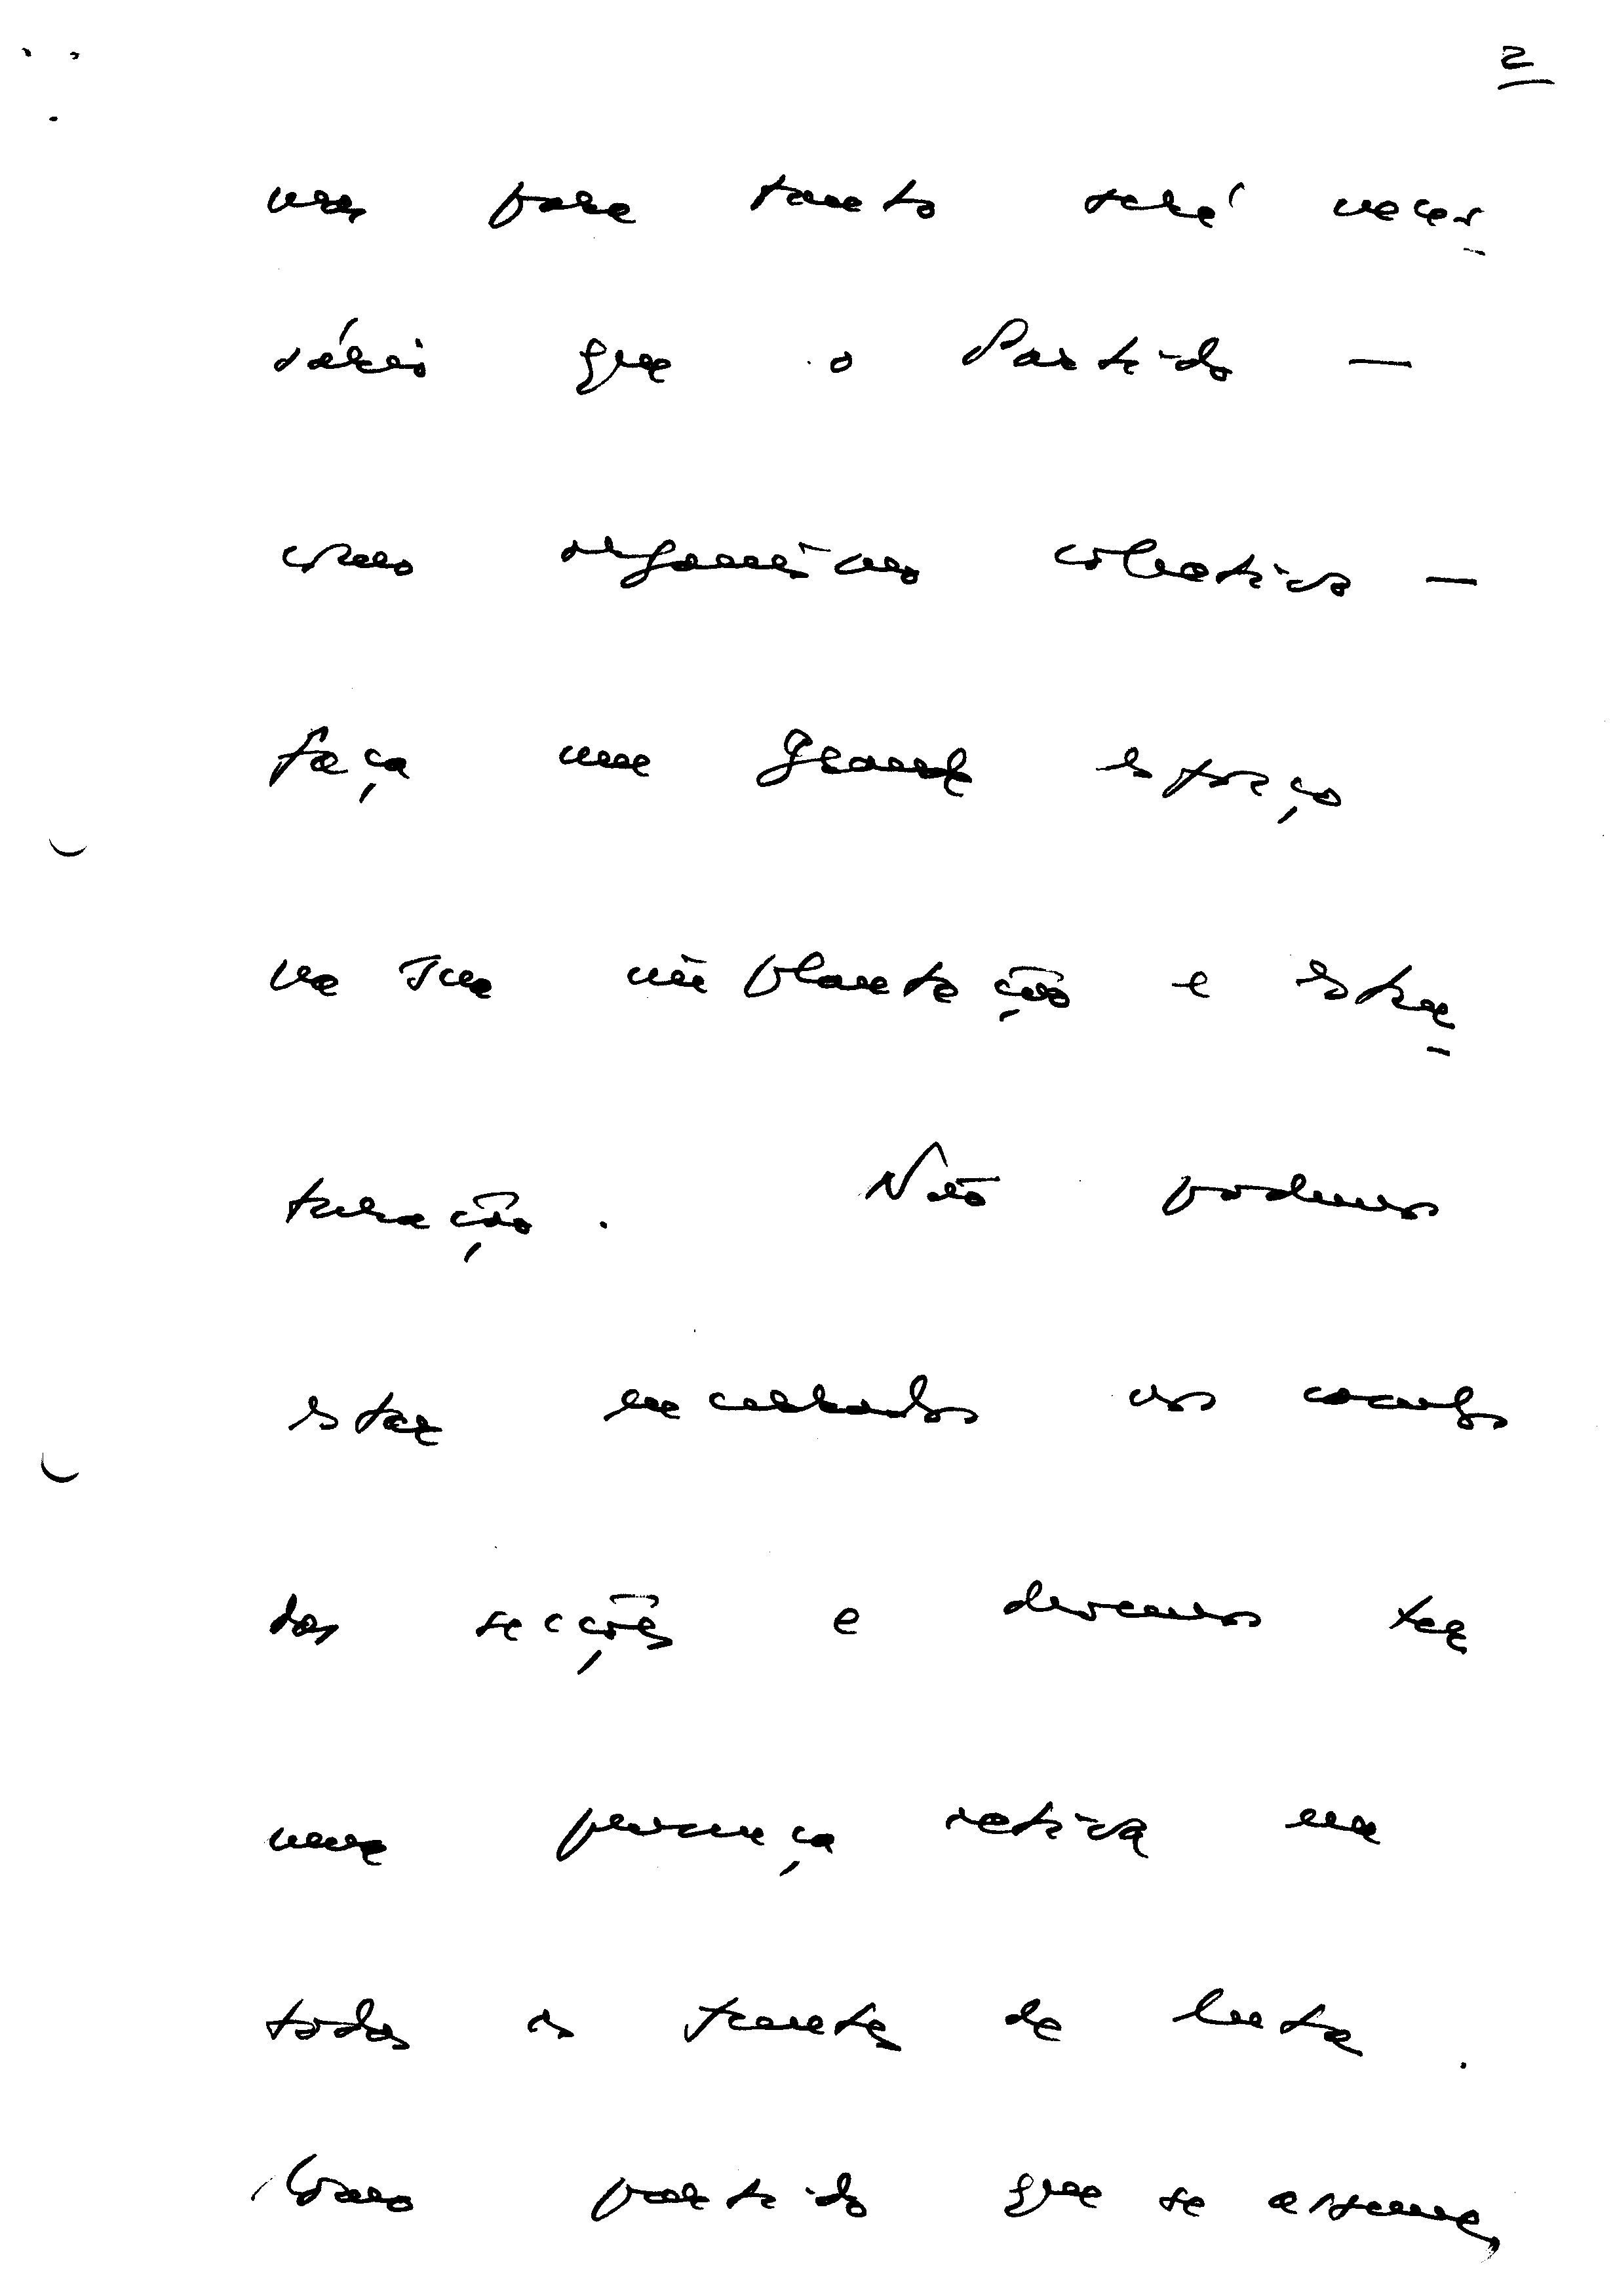 2
mas para tanto será neces-
sário que o Partido —
como organismo colectivo —
faça um grande esforço
na sua implantação e estru-
turação. Não podemos
estar encerrados nos
das secções e devemos ter
uma presença activa em
todas as frentes de luta.
Como partido que se assume,